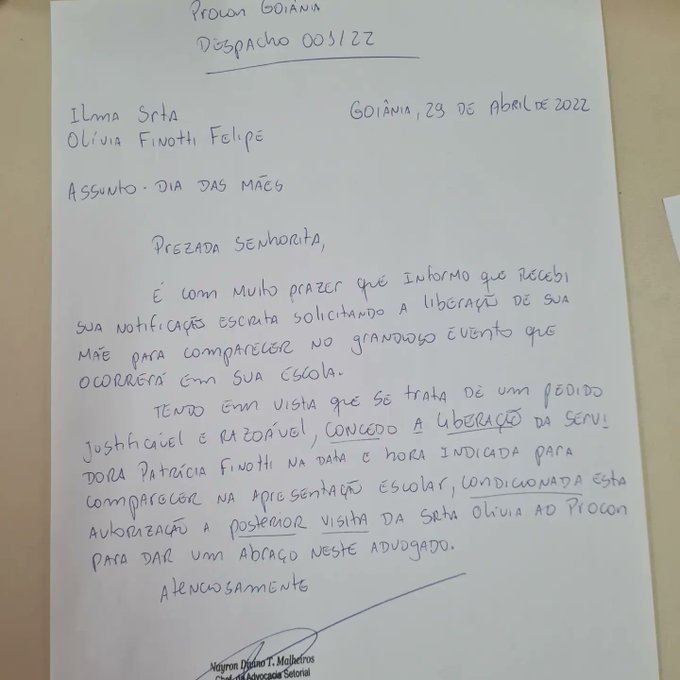 Procon Goiânia
Despacho 001/22
Ilma Srta
Goiânia, 29 de Abril de 2022
Olívia Finotti Felipe
Assunto - Dia das Mães
Prezada Senhorita,
É com muito prazer que informo que recebi
sua notificação escrita solicitando a liberação de sua
mãe para comparecer no grandioso evento que
ocorrerá em sua escola.
Tendo em vista que se trata de um pedido
justificável e razoável, concedo a liberação da servi
dora Patrícia Finotti na data e hora indicada para
comparecer na apresentação escolar, condicionada esta
autorização a posterior visita da Srta Olívia ao Procon
para dar um abraço neste advogado.
Atenciosamente
Nayron Divino T. Malheiros
Chef. da Advocacia Setorial